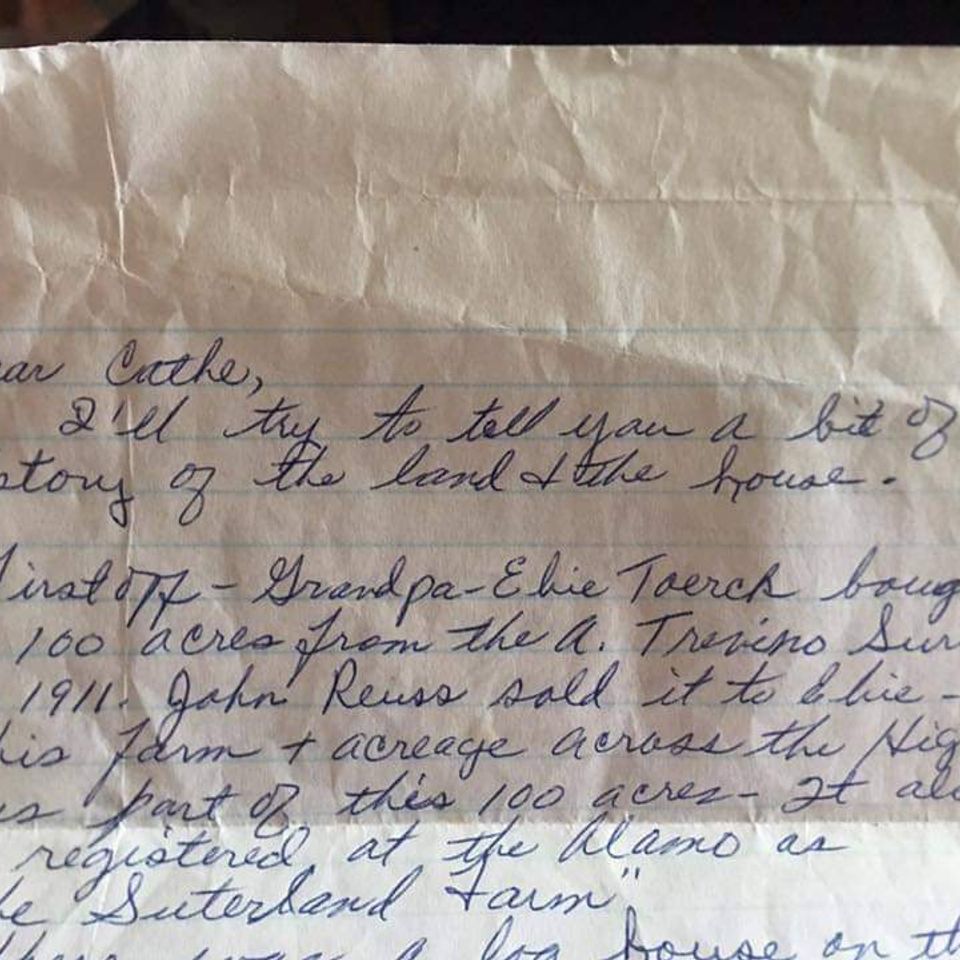 ar Cathe,
I'll try to tell you a bit of
story of the land & the house.
First off - Grandpa - Ebie Toerck boug
100 acres from the A. Trevino Sur
1911. John Reuss sold it to Ebie -
his farm + acreage across the Hig
as part of this 100 acres - It als
registered at the Alamo as
he Suterland Farm"
there was a log house on th